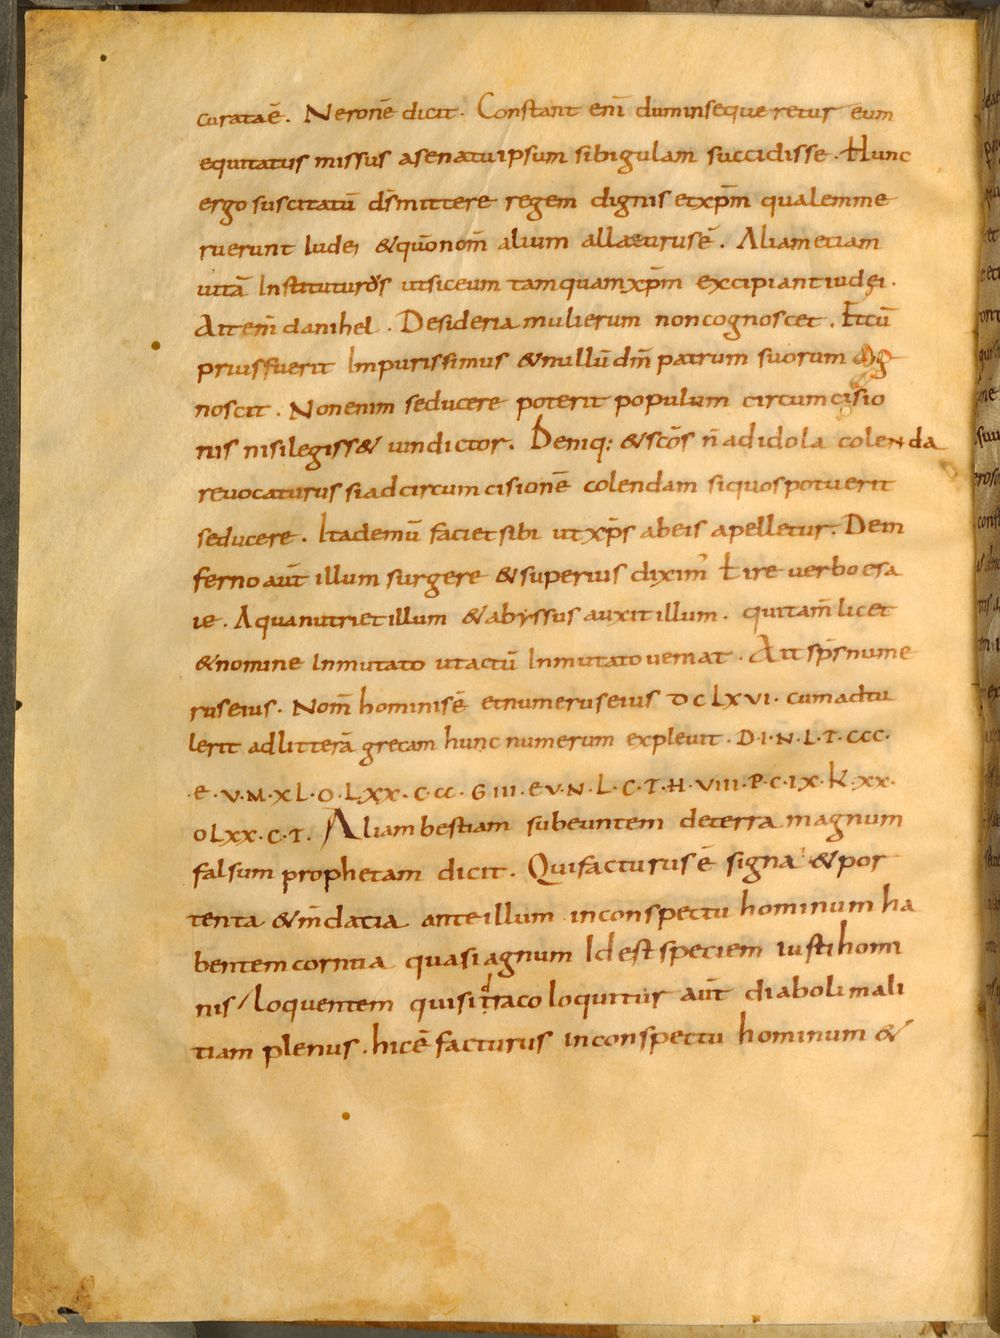 curataē. Neronē dicit. Constant enī duminsequeretur eum
equitatus missus asenatu ipsum sibi gulam succidisse. Hunc
ergo suscitatū d̄s mittere regem dignis et xp̄m qualem me
ruerunt Iudęi & quō nom̄ alium allaturus ē. Aliam etiam
uitā Instituturus ut sic eum tamquam xp̄m excipiant iudęi.
Ait em̄ danihel. Desideria mulierum non cognoscet. Et cū
prius fuerit Impurissimus & nullū dm̄ patrum suorum cog
noscit. Non enim seducere poterit populum circumcisio
nis nisi legis s& uindictor. Deniq: & sc̄os n̄ ad idola colenda
reuocaturus si ad circumcisionē colendam si quos potuerit
seducere. Ita demū faciet sibi ut xp̄s ab eis apelletur. De in
ferno aūt illum surgere & superius dixim' t ire uerbo esa
ie. Aqua nutriet illum & abyssus auxit illum. qui tam̄ licet
& nomine Inmutato ut actū Inmutato ueniat. Ait sp̄s nume
rus eius. Nom̄ hominis ē et numerus eius DCLXVI. cum actu
lerit ad litterā grecam hunc numerum expleuit. D.I.N.L.T.CCC.
.E.V.M.XL.O.LXX.C.CC.G III.E V.N.L.C.T.H.VIII.P.C.IX.K.XX.
OLXX.C.T. Aliam bestiam subeuntem de terra magnum
falsum prophetam dicit. Qui facturus ē signa & por
tenta & m̄datia ante illum in conspectu hominum ha
bentem cornua quasi agnum Id est speciem iusti homi
nis / Loquentem quasi draco loquitur aūt diaboli mali
tiam plenus. hic ē facturus in conspectu hominum &